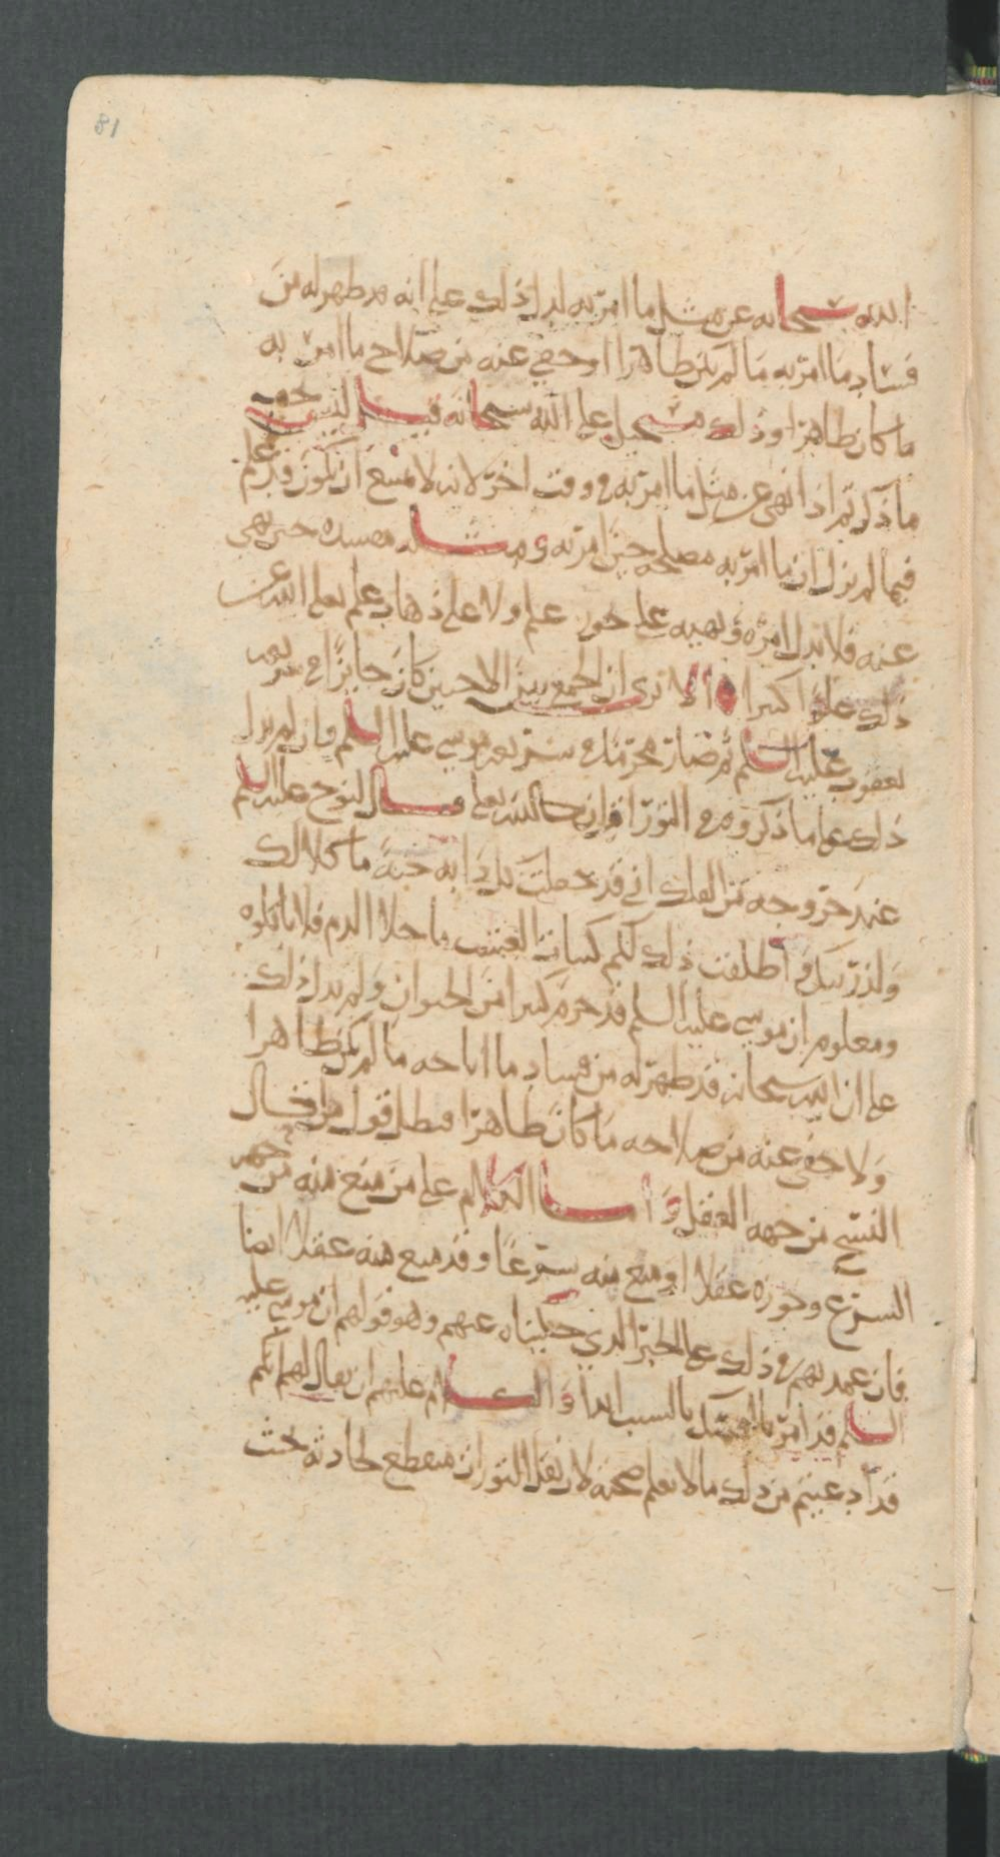 81
الله سبحانه عن مثل ما امر به لدل ذلك على انه قد ظهر له من
فساد ما امر به ما لم يكن ظاهرا او خفي عنه من صلاح ما امر به
ما كان ظاهرا وذلك مستحيل على الله سبحانه قيل لهم ليس يجب
ما ذكرتم اذا نهى عن مثل ما امر به في وقت اخر لانه لا يمتنع ان يكون قد علم
فيما لم يزل ان ما امر به مصلحة حين امر به ومثله مفسدة حين نهى
عنه فلا يدل امره ونهيه على حدوث علم ولا على ذهاب علم تعالى الله عن
ذلك علوا كبيرا الا ترى ان الجمع بين الاختين كان جايزا في شريعة
يعقوب عليه السلم ثم صار محرما في شريعة موسى عليه السلم وان لم يدل
ذلك على ما ذكروه وفي التوراة ان الله تعالى قال لنوح عليه السلم
عند خروجه من الفلك اني قد جعلت كل دابة حية ماكلا لك
ولذريتك واطلقت ذلك لكم كنبات العشب ما خلا الدم فلا تاكلوه
ومعلوم ان موسى عليه السلم قد حرم كثيرا من الحيوان ولم يدل ذلك
على ان الله سبحانه قد ظهر له من فساد ما اباحه ما لم يكن ظاهرا
ولا خفي عنه من صلاحه ما كان ظاهرا فبطل قول من احال
النسخ من جهة العقل واما الكلام على من منع منه من جهة
الشرع وجوزه عقلا او منع منه شرعا وقد منع منه عقلا ايضا
فان عمدتهم في ذلك على الخبر الذي حكيناه عنهم وهو قولهم ان موسى عليه
السلم قد امر بالتمسك بالسبت ابدا والكلام عليهم ان يقال لهم انكم
قد ادعيتم من ذلك ما لا نعلم صحته لان نقل التوراة منقطع لحادثة بخت